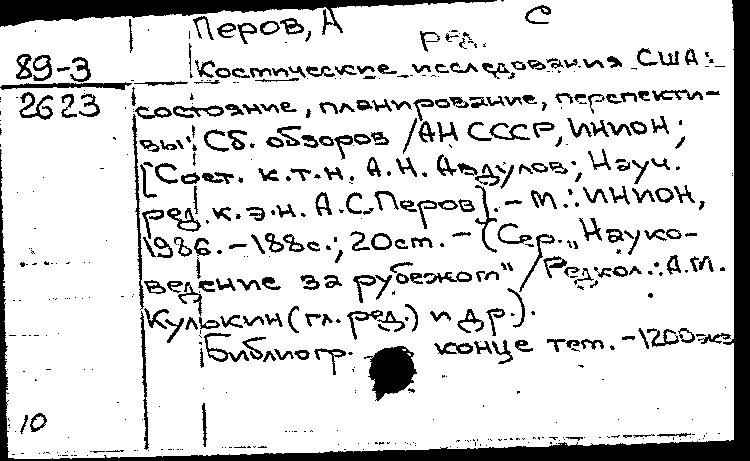 Перов, А С
ред.
89-3
Космические исследования США:
2623
состояние, планирование, перспекти-
вы: Сб. обзоров / АН СССР, ИНИОН;
[Сост. к.т.н. А.Н. Авдулов; Науч.
ред. к.э.н. А.С. Перов]. - М.: ИНИОН,
1986. - 188с.; 20см. - (Сер. „Науко-
ведение за рубежом" / Редкол.: А.М.
Кулькин (гл. ред.) и др.).
Библиогр. конце тем. - 1200экз
10